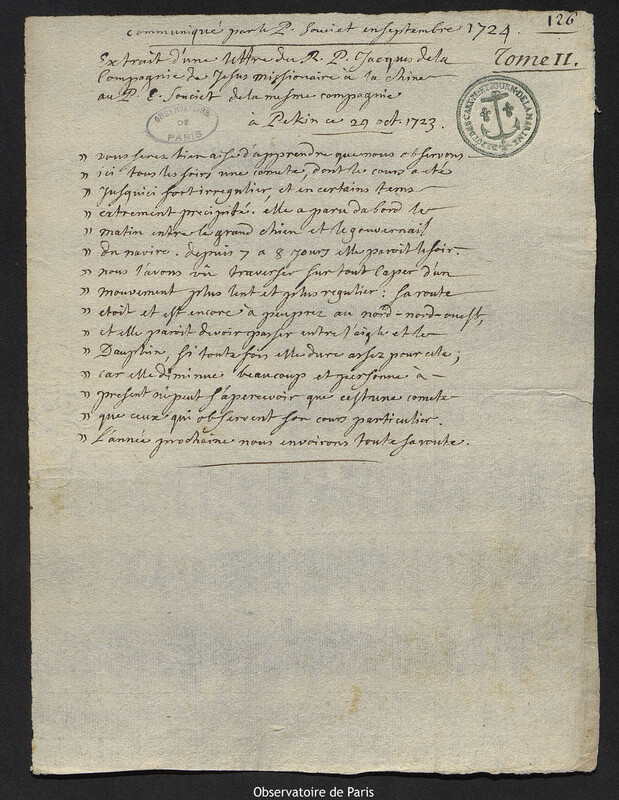 communiqué par le P. Souciet en septembre 1724.
126
Tome II.
Extrait d'une lettre du R. P. Jacques de la
Compagnie de Jesus missionaire à la Chine
au P. E. Souciet de la mesme compagnie
à Pekin ce 29 oct. 1723.
OBSERVATOIRE
DE
PARIS
DEPOT DES CARTES ET JOURN. DE LA MARINE
" vous serez bien aise d'apprendre que nous observons
" ici tous les soirs une comete, dont le cours a été
" jusqu'ici fort irregulier et en certains tems
" extrement précipité. elle a paru dabord le
" matin entre le grand chien et le gouvernail
" du navire. depuis 7 a 8 jours elle paroit le soir.
" nous l'avons vû traverser sur tout l'aper d'un
" mouvement plus lent et plus regulier: sa route
" etoit et est encore à peu prez au nord-nord-ouest,
" et elle paroit devoir passer entre l'aigle et le
" Dauphin, si toute fois elle dure assez pour cela;
" car elle diminue beaucoup et personne à-
" present ne peut s'apercevoir que c'est une comete
" que ceux qui observent son cours particulier.
" L'année prochaine nous envoirons toute sa route.
Observatoire de Paris